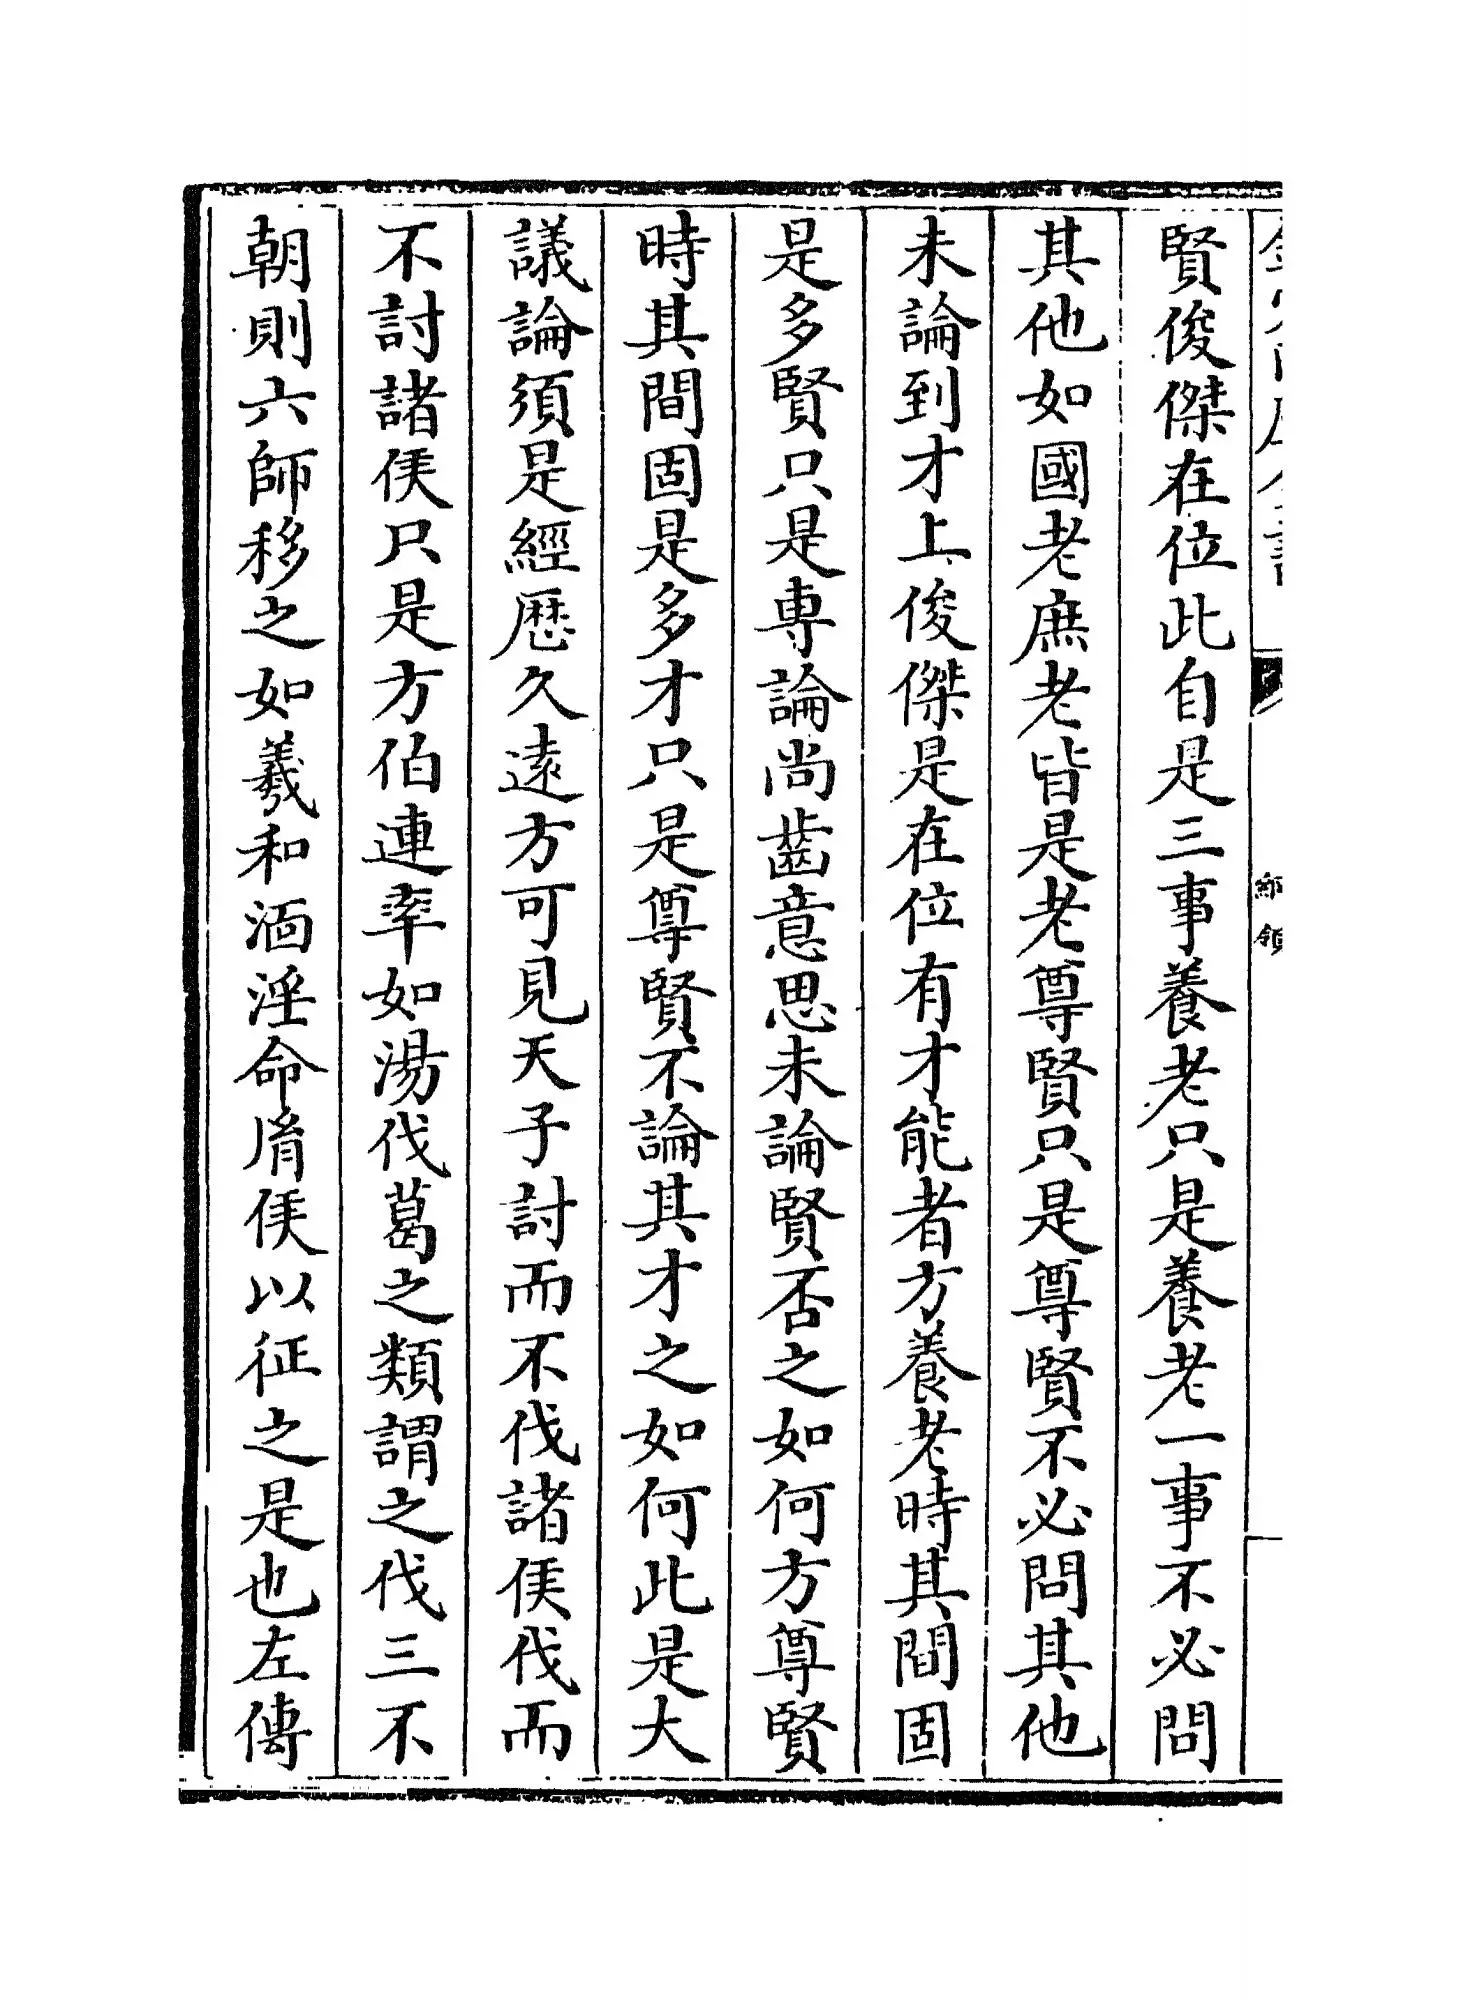 賢俊傑在位此自是三事養老只是養老一事不必問
其他如國老庶老皆是老尊賢只是尊賢不必問其他
未論到才上俊傑是在位有才能者方養老時其間固
是多賢只是専論尚齒意思未論賢否之如何方尊賢
時其間固是多才只是尊賢不論其才之如何此是大
議論須是經歴久逺方可見天子討而不伐諸侯伐而
不討諸侯只是方伯連率如湯伐葛之類謂之伐三不
朝則六師移之如羲和湎淫命胤侯以征之是也左傳